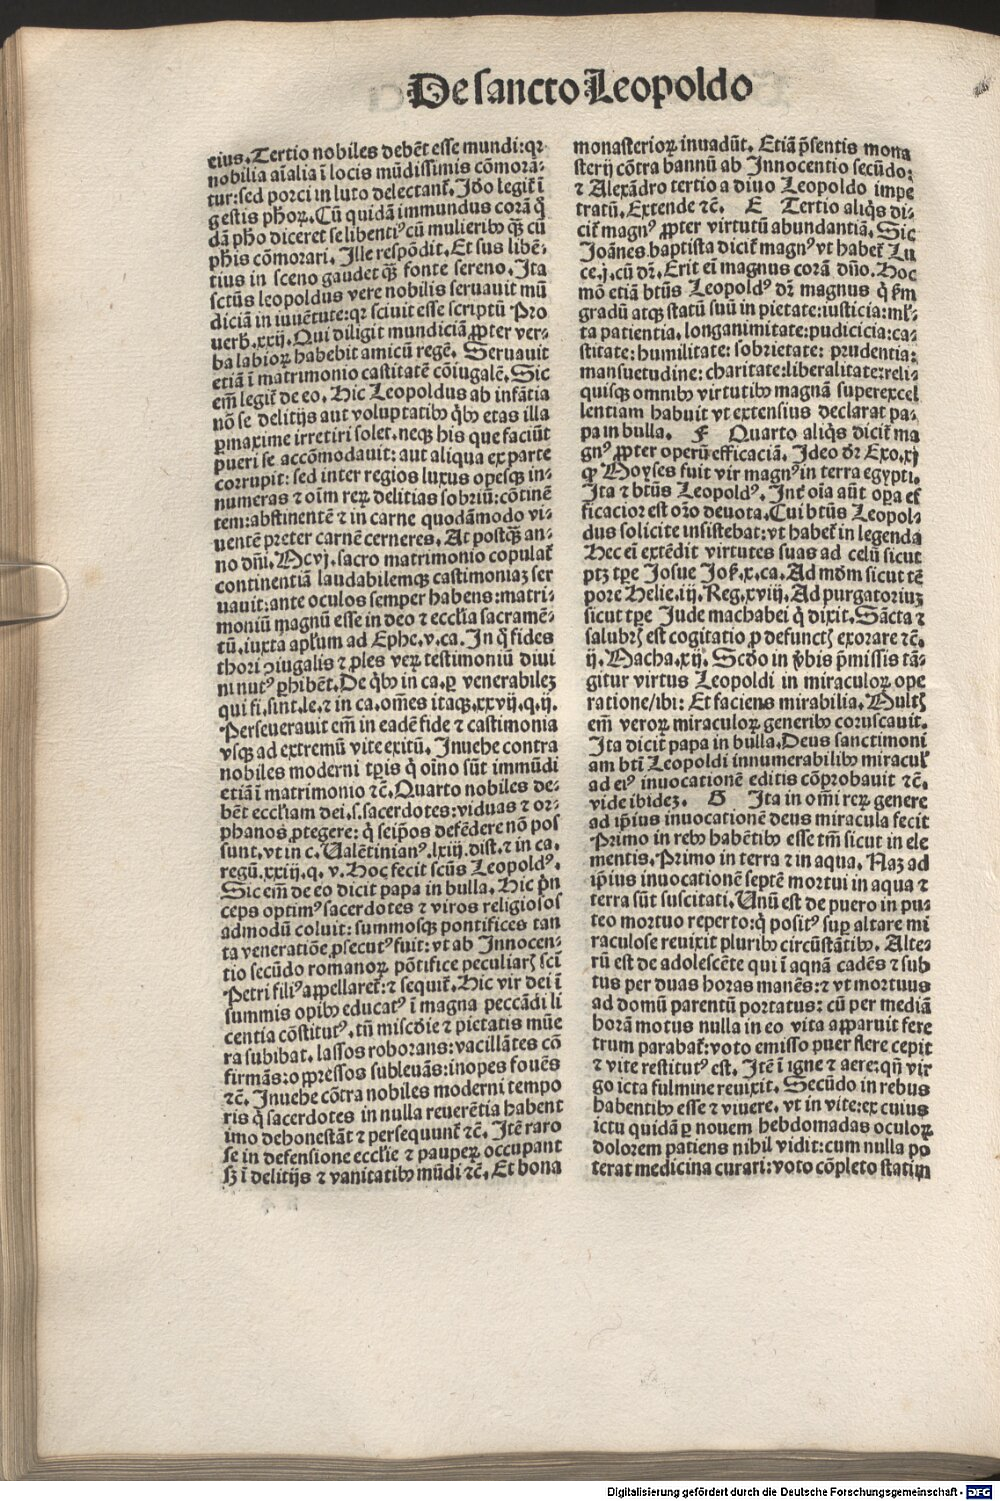 De sancto Leopoldo
eius. Tertio nobiles debēt esse mundi: qꝛ
nobilia aīalia ī locis mūdissimis cōmorā-
tur: sed porci in luto delectanť. Jdo legiť ī
gestis phoꝝ. Cū quidā immundus corā q̄
dā pho diceret se libentiꝰ cū mulieribꝰ q̄ꝫ cū
phis cōmorari. Jlle respōdit. Et sus libē-
tius in sceno gaudet q̄ꝫ fonte sereno. Jta
sctūs leopoldus vere nobilis seruauit mū
diciā in iuuētute: qꝛ sciuit esse scriptū Pro
uerb. xxij. Qui diligit mundiciā ꝓpter ver-
ba labioꝝ habebit amicū regē. Seruauit
etiā ī matrimonio castitatē cōiugalē. Sic
em̄ legiť de eo. Hic Leopoldus ab infātia
nō se delitijs aut voluptatibꝰ q̄bꝰ etas illa
ꝑmaxime irretiri solet. neqꝫ his que faciūt
pueri se accōmodauit: aut aliqua ex parte
corrupit: sed inter regios luxus opesqꝫ in-
numeras ⁊ oīm reꝝ delitias sobriū: cōtinē
tem: abstinentē ⁊ in carne quodāmodo vi-
uentē preter carnē cerneres. At postq̄ꝫ an-
no dn̄i. Mcvj. sacro matrimonio copulať
continentiā laudabilemqꝫ castimoniaꝫ ser
uauit: ante oculos semper habens: matri-
moniū magnū esse in deo ⁊ ecclīa sacramē-
tū. iuxta apłum ad Ephe. v. ca. Jn q̄ fides
thori ꝯiugalis ⁊ ꝓles veꝝ testimoniū diui
ni nutꝰ ꝑhibēt. De q̄bꝰ in ca. ꝑ venerabileꝫ
qui fi. sint. le. ⁊ in ca. om̄es itaqꝫ. xxvij. q. ij.
Perseuerauit em̄ in eadē fide ⁊ castimonia
vsqꝫ ad extremū vite exitū. Jnuehe contra
nobiles moderni tꝑis q̄ oīno sūt immūdi
etiā ī matrimonio ⁊c̄. Quarto nobiles de-
bēt eccłiam dei. s. sacerdotes: viduas ⁊ or-
phanos ꝓtegere: q̄ seip̄os defēdere nō pos
sunt. vt in c. Ualētinianꝰ. lxiij. dist. ⁊ in ca.
regū. xxiij. q. v. Hoc fecit sctūs Leopoldꝰ.
Sic em̄ de eo dicit papa in bulla. Hic p̄n
ceps optimꝰ sacerdotes ⁊ viros religiosos
admodū coluit: summosqꝫ pontifices tan
ta veneratiōe ꝓsecutꝰ fuit: vt ab Jnnocen-
tio secūdo romanoꝝ pōtifice peculiarꝭ scī
Petri filiꝰ appellareť: ⁊ sequiť. Hic vir dei ī
summis opibꝰ educatꝰ ī magna peccādi li
centia cōstitutꝰ. tū miscdie ⁊ pietatis mūe
ra subibat. lassos roborans: vacillātes cō
firmās: oppressos subleuās: inopes fouēs
⁊c̄. Jnuehe cōtra nobiles moderni tempo
ris q̄ sacerdotes in nulla reuerētia habent
imo dehonestāt ⁊ persequunť ⁊c̄. Jtē raro
se in defensione ecclīe ⁊ pauperꝝ occupant
sꝫ ī delitijs ⁊ vanitatibꝰ mūdi ⁊c̄. Et bona
monasterioꝝ inuadūt. Etiā p̄sentis mona
sterij cōtra bannū ab Jnnocentio secūdo:
⁊ Alexādro tertio a diuo Leopoldo impe
tratū. Extende ⁊c̄. E Tertio aliq̄s di-
ciť magnꝰ ꝓpter virtutū abundantiā. Sic
Joānes baptista diciť magnꝰ vt habeť Lu
ce. j. cū dꝛ̄. Erit eī magnus corā dn̄o. Hoc
mō etiā btūs Leopoldꝰ dꝛ̄ magnus q̄ ẜm
gradū atqꝫ statū suū in pietate: iusticia: ml-
ta patientia. longanimitate: pudicicia: ca-
stitate: humilitate: sobrietate: prudentia:
mansuetudine: charitate: liberalitate: reli-
quisqꝫ omnibꝰ virtutibꝰ magnā superexcel
lentiam habuit vt extensius declarat pa-
pa in bulla. F Quarto aliq̄s diciť ma
gnꝰ ꝓpter operū efficaciā. Jdeo dꝛ̄ Exo. xj
qꝫ Moyses fuit vir magnꝰ in terra egypti.
Jta ⁊ btūs Leopoldꝰ. Jnť oīa aūt oꝑa ef
ficacior est orō deuota. Cui btūs Leopol-
dus solicite insistebat: vt habeť in legenda
Hec eī extēdit virtutes suas ad celū sicut
ptꝫ tꝑe Josue Joſ. x. ca. Ad mdm sicut tē
pore Helie. iij. Reg. xviij. Ad purgatoriuꝫ
sicut tꝑe Jude machabei q̄ dixit. Sācta ⁊
salubrꝭ est cogitatio ꝓ defunctꝭ exorare ⁊c̄.
ij. Macha. xij. Scdo in v̄bis p̄missis tā-
gitur virtus Leopoldi in miraculoꝝ ope
ratione/ibi: Et faciens mirabilia. Multꝭ
em̄ veroꝝ miraculoꝝ generibꝰ coruscauit.
Jta dicit papa in bulla. Deus sanctimoni
am btī Leopoldi innumerabilibꝰ miracuł
ad eiꝰ inuocationē editis cōprobauit ⁊c̄.
vide ibideꝫ. G Jta in om̄i reꝝ genere
ad ip̄ius inuocationē deus miracula fecit
Primo in rebꝰ habētibꝰ esse tm̄ sicut in ele
mentis. Primo in terra ⁊ in aqua. Naꝫ ad
ip̄ius inuocationē septē mortui in aqua ⁊
terra sūt suscitati. Unū est de puero in pu-
teo mortuo reperto: q̄ positꝰ suꝑ altare mi
raculose reuixit pluribꝰ circūstātibꝰ. Alte-
rū est de adolescēte qui ī aquā cadēs ⁊ sub
tus per duas horas manēs: ⁊ vt mortuus
ad domū parentū portatus: cū per mediā
horā motus nulla in eo vita apparuit fere
trum parabať: voto emisso puer flere cepit
⁊ vite restitutꝰ est. Jtē ī igne ⁊ aere: qn̄ vir
go icta fulmine reuixit. Secūdo in rebus
habentibꝰ esse ⁊ viuere. vt in vite: ex cuius
ictu quidā ꝑ nouem hebdomadas oculoꝝ
dolorem patiens nihil vidit: cum nulla po
terat medicina curari: voto cōpleto statim
Digitalisierung gefördert durch die Deutsche Forschungsgemeinschaft - DFG